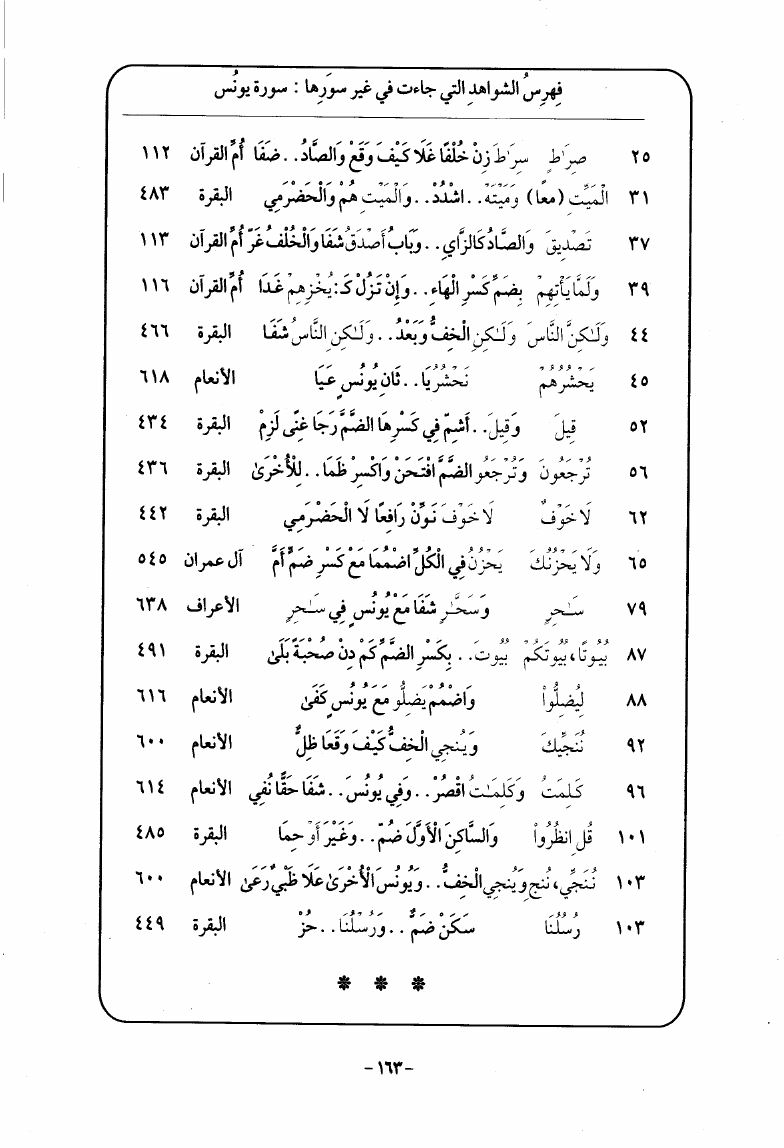 فِهرِسُ الشواهدِ التي جاءت في غيرِ سوَرِها : سورة يونُس
٢٥ صِرَٰطٍ سِرَٰطَ زِنْ خُلْفًا غَلَا كَيْفَ وَقَعْ وَالصَّادُ.. ضَفَا أُمِّ القرآن ١١٢
٣١ الْمَيِّتِ (معًا) وَمَيْتَهْ.. اشْدُدْ.. وَالْمَيِّتِ هُمْ وَالْحَضْرَمِي البقرة ٤٨٣
٣٧ تَصْدِيقَ وَالصَّادُ كَالزَّاي.. وَبَابُ أَصْدَقُ شَفَا وَالْخُلْفُ غَرّ أُمِّ القرآن ١١٣
٣٩ وَلَمَّا يَأْتِهِمْ بِضَمِّ كَسْرِ الْهَاءِ.. وَإِنْ تَزُلْ كَـ: يُخْزِهِمْ غَدَا أُمِّ القرآن ١١٦
٤٤ وَلَٰكِنَّ النَّاسَ وَلَٰكِنِ الْخِفُّ وَبَعْدُ.. وَلَٰكِنِ النَّاسُ شَفَا البقرة ٤٦٦
٤٥ يَحْشُرُهُمْ نَحْشُرُ يَا.. ثَانِ يُونُسٍ عَيَا الأنعام ٦١٨
٥٢ قِيلَ وَقِيلَ.. أَشِمّ فِي كَسْرِهَا الضَّمَّ رَجَا غِنًى لَزِمْ البقرة ٤٣٤
٥٦ تُرْجَعُونَ وَتُرْجَعُو الضَّمَّ افْتَحَنْ وَاكْسِرْ ظَمَا.. لِلْأُخْرَىٰ البقرة ٤٣٦
٦٢ لَا خَوْفٌ لَا خَوْفَ نَوِّنْ رَافِعًا لَا الْحَضْرَمِي البقرة ٤٤٢
٦٥ وَلَا يَحْزُنْكَ يَحْزُنُ فِي الْكُلِّ اضْمُمَا مَعْ كَسْرِ ضَمٍّ أَمَّ آل عمران ٥٤٥
٧٩ سَٰحِرٍ وَسَحَّٰرٍ شَفَا مَعْ يُونُسٍ فِي سَٰحِرِ الأعراف ٦٣٨
٨٧ بُيُوتًا، بُيُوتَكُمْ بُيُوتَ.. بِكَسْرِ الضَّمِّ كَمْ دِنْ صُحْبَةٌ بَلَىٰ البقرة ٤٩١
٨٨ لِيُضِلُّواْ وَاضْمُمْ يَضِلُّو مَعَ يُونُسٍ كَفَىٰ الأنعام ٦١٦
٩٢ نُنَجِّيكَ وَيُنجِي الْخِفُّ كَيْفَ وَقَعَا ظِلٌّ الأنعام ٦٠٠
٩٦ كَلِمَتُ وَكَلِمَٰتُ اقْصُرْ.. وَفِي يُونُسَ.. شَفَا حَقًّا نُفِي الأنعام ٦١٤
١٠١ قُلِ انظُرُواْ وَالسَّاكِنَ الْأَوَّلَ ضُمّ.. وَغَيْرَ أَوْ حِمَا البقرة ٤٨٥
١٠٣ نُنَجِّي، نُنجِ وَيُنجِي الْخِفُّ.. وَيُونُسَ الْأُخْرَىٰ عَلَا ظَبْيٌ رَعَىٰ الأنعام ٦٠٠
١٠٣ رُسُلَنَا سَكَنْ ضَمٌّ.. وَرُسْلُنَا.. حُزْ البقرة ٤٤٩
* * *
-١٦٣-